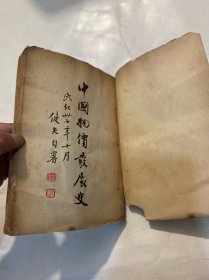 中國物價發展史
民國卅六年十月
健夫自署